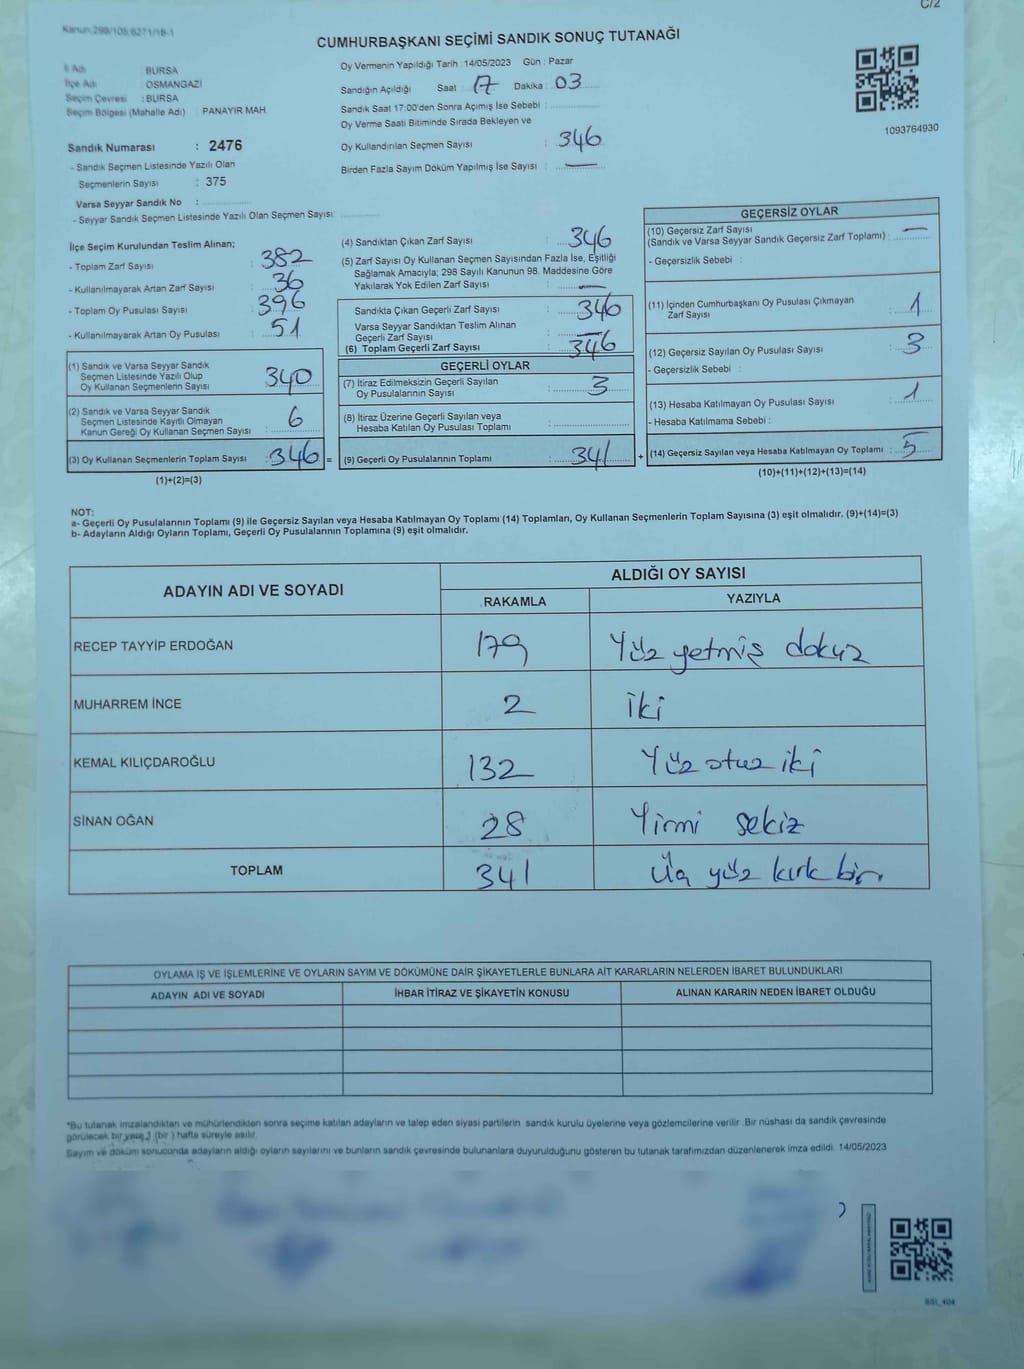 C/2
Kanun:298/105,6271/18-1
CUMHURBAŞKANI SEÇİMİ SANDIK SONUÇ TUTANAĞI
İl Adı BURSA
İlçe Adı OSMANGAZİ
Seçim Çevresi : BURSA
Seçim Bölgesi (Mahalle Adı) PANAYIR MAH.
Sandık Numarası : 2476
- Sandık Seçmen Listesinde Yazılı Olan
Seçmenlerin Sayısı : 375
Varsa Seyyar Sandık No :
- Seyyar Sandık Seçmen Listesinde Yazılı Olan Seçmen Sayısı:
Oy Vermenin Yapıldığı Tarih : 14/05/2023 Gün : Pazar
Sandığın Açıldığı Saat 17 Dakika : 03
Sandık Saat 17:00'den Sonra Açımış İse Sebebi :
Oy Verme Saati Bitiminde Sırada Bekleyen ve
Oy Kullandırılan Seçmen Sayısı : 346
Birden Fazla Sayım Döküm Yapılmış İse Sayısı : —
1093764930
İlçe Seçim Kurulundan Teslim Alınan;
- Toplam Zarf Sayısı : 382
- Kullanılmayarak Artan Zarf Sayısı : 36
- Toplam Oy Pusulası Sayısı : 396
- Kullanılmayarak Artan Oy Pusulası : 51
(1) Sandık ve Varsa Seyyar Sandık
Seçmen Listesinde Yazılı Olup
Oy Kullanan Seçmenlerin Sayısı 340
(2) Sandık ve Varsa Seyyar Sandık
Seçmen Listesinde Kayıtlı Olmayan
Kanun Gereği Oy Kullanan Seçmen Sayısı : 6
(3) Oy Kullanan Seçmenlerin Toplam Sayısı : 346 =
(1)+(2)=(3)
(4) Sandıktan Çıkan Zarf Sayısı : 346
(5) Zarf Sayısı Oy Kullanan Seçmen Sayısından Fazla İse, Eşitliği
Sağlamak Amacıyla; 298 Sayılı Kanunun 98. Maddesine Göre
Yakılarak Yok Edilen Zarf Sayısı : —
Sandıkta Çıkan Geçerli Zarf Sayısı : 346
Varsa Seyyar Sandıktan Teslim Alınan
Geçerli Zarf Sayısı : —
(6) Toplam Geçerli Zarf Sayısı : 346
GEÇERLİ OYLAR
(7) İtiraz Edilmeksizin Geçerli Sayılan
Oy Pusulalarının Sayısı : 3
(8) İtiraz Üzerine Geçerli Sayılan veya
Hesaba Katılan Oy Pusulası Toplamı :
(9) Geçerli Oy Pusulalarının Toplamı : 341 +
GEÇERSİZ OYLAR
(10) Geçersiz Zarf Sayısı
(Sandık ve Varsa Seyyar Sandık Geçersiz Zarf Toplamı) : —
- Geçersizlik Sebebi :
(11) İçinden Cumhurbaşkanı Oy Pusulası Çıkmayan
Zarf Sayısı : 1
(12) Geçersiz Sayılan Oy Pusulası Sayısı : 3
- Geçersizlik Sebebi :
(13) Hesaba Katılmayan Oy Pusulası Sayısı : 1
- Hesaba Katılmama Sebebi :
(14) Geçersiz Sayılan veya Hesaba Katılmayan Oy Toplamı : 5
(10)+(11)+(12)+(13)=(14)
NOT:
a- Geçerli Oy Pusulalarının Toplamı (9) ile Geçersiz Sayılan veya Hesaba Katılmayan Oy Toplamı (14) Toplamları, Oy Kullanan Seçmenlerin Toplam Sayısına (3) eşit olmalıdır. (9)+(14)=(3)
b- Adayların Aldığı Oyların Toplamı, Geçerli Oy Pusulalarının Toplamına (9) eşit olmalıdır.
ADAYIN ADI VE SOYADI ALDIĞI OY SAYISI
RAKAMLA YAZIYLA
RECEP TAYYİP ERDOĞAN 179 Yüz yetmiş dokuz
MUHARREM İNCE 2 İki
KEMAL KILIÇDAROĞLU 132 Yüz otuz iki
SİNAN OĞAN 28 Yirmi sekiz
TOPLAM 341 Üç yüz kırk bir
OYLAMA İŞ VE İŞLEMLERİNE VE OYLARIN SAYIM VE DÖKÜMÜNE DAİR ŞİKAYETLERLE BUNLARA AİT KARARLARIN NELERDEN İBARET BULUNDUKLARI
ADAYIN ADI VE SOYADI İHBAR İTİRAZ VE ŞİKAYETİN KONUSU ALINAN KARARIN NEDEN İBARET OLDUĞU
*Bu tutanak imzalandıktan ve mühürlendikten sonra seçime katılan adayların ve talep eden siyasi partilerin sandık kurulu üyelerine veya gözlemcilerine verilir. Bir nüshası da sandık çevresinde
görülecek bir yere 1 (bir ) hafta süreyle asılır.
Sayım ve döküm sonucunda adayların aldığı oyların sayılarını ve bunların sandık çevresinde bulunanlara duyurulduğunu gösteren bu tutanak tarafımızdan düzenlenerek imza edildi. 14/05/2023